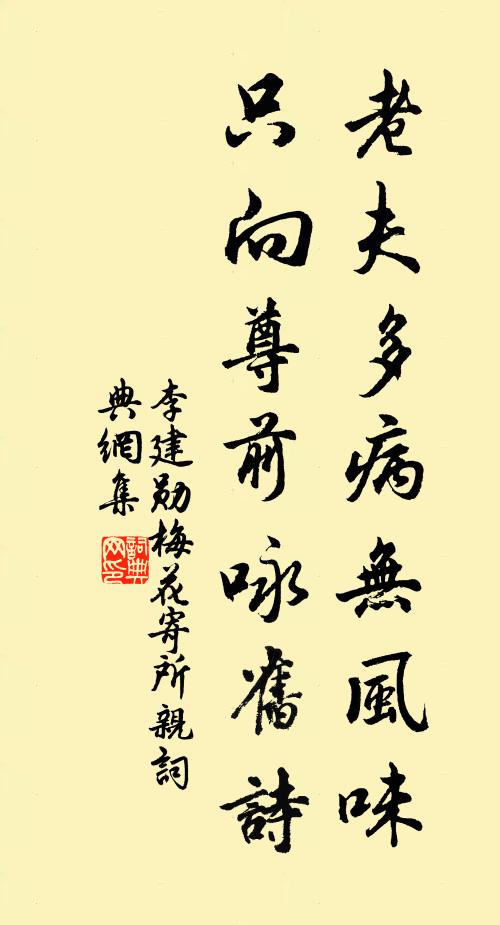 老夫多病無風味
只向尊前咏舊詩
李建勋梅花寄所親詞
典網集
詞典
网印